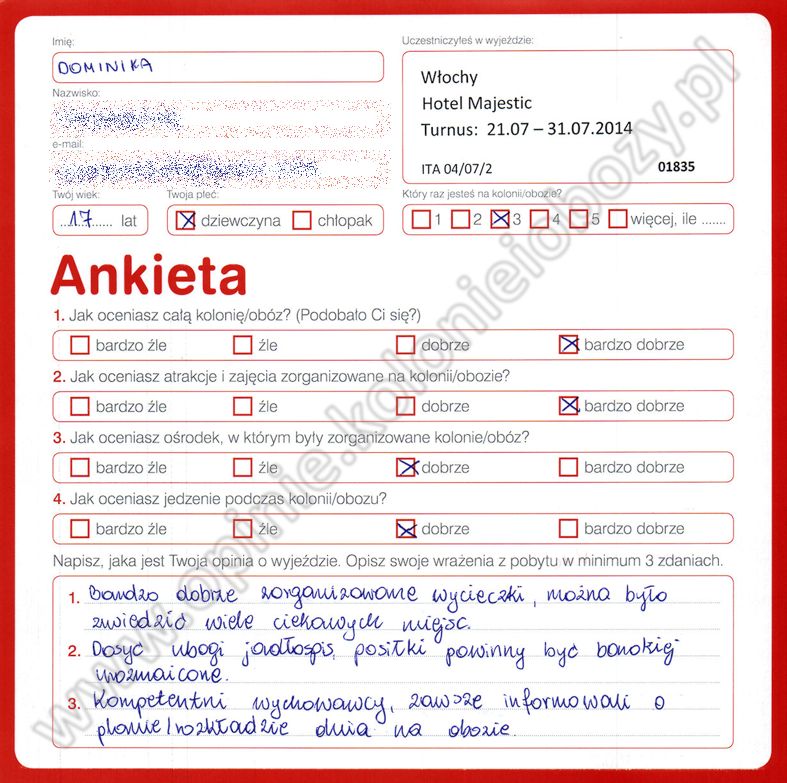 Imię:
DOMINIKA
Nazwisko:
e-mail:
Twój wiek:
17 lat
Twoja płeć:
dziewczyna chłopak
Uczestniczyłeś w wyjeździe:
Włochy
Hotel Majestic
Turnus: 21.07 – 31.07.2014
ITA 04/07/2 01835
Który raz jesteś na kolonii/obozie?
1 2 3 4 5 więcej, ile .......
Ankieta
1. Jak oceniasz całą kolonię/obóz? (Podobało Ci się?)
bardzo źle źle dobrze bardzo dobrze
2. Jak oceniasz atrakcje i zajęcia zorganizowane na kolonii/obozie?
bardzo źle źle dobrze bardzo dobrze
3. Jak oceniasz ośrodek, w którym były zorganizowane kolonie/obóz?
bardzo źle źle dobrze bardzo dobrze
4. Jak oceniasz jedzenie podczas kolonii/obozu?
bardzo źle źle dobrze bardzo dobrze
Napisz, jaka jest Twoja opinia o wyjeździe. Opisz swoje wrażenia z pobytu w minimum 3 zdaniach.
1. Bardzo dobrze zorganizowane wycieczki, można było
zwiedzić wiele ciekawych miejsc.
2. Dosyć ubogi jadłospis, posiłki powinny być bardziej
urozmaicone.
3. Kompetentni wychowawcy, zawsze informowali o
planie/rozkładzie dnia na obozie.
www.opinie.kolonieiobozy.pl